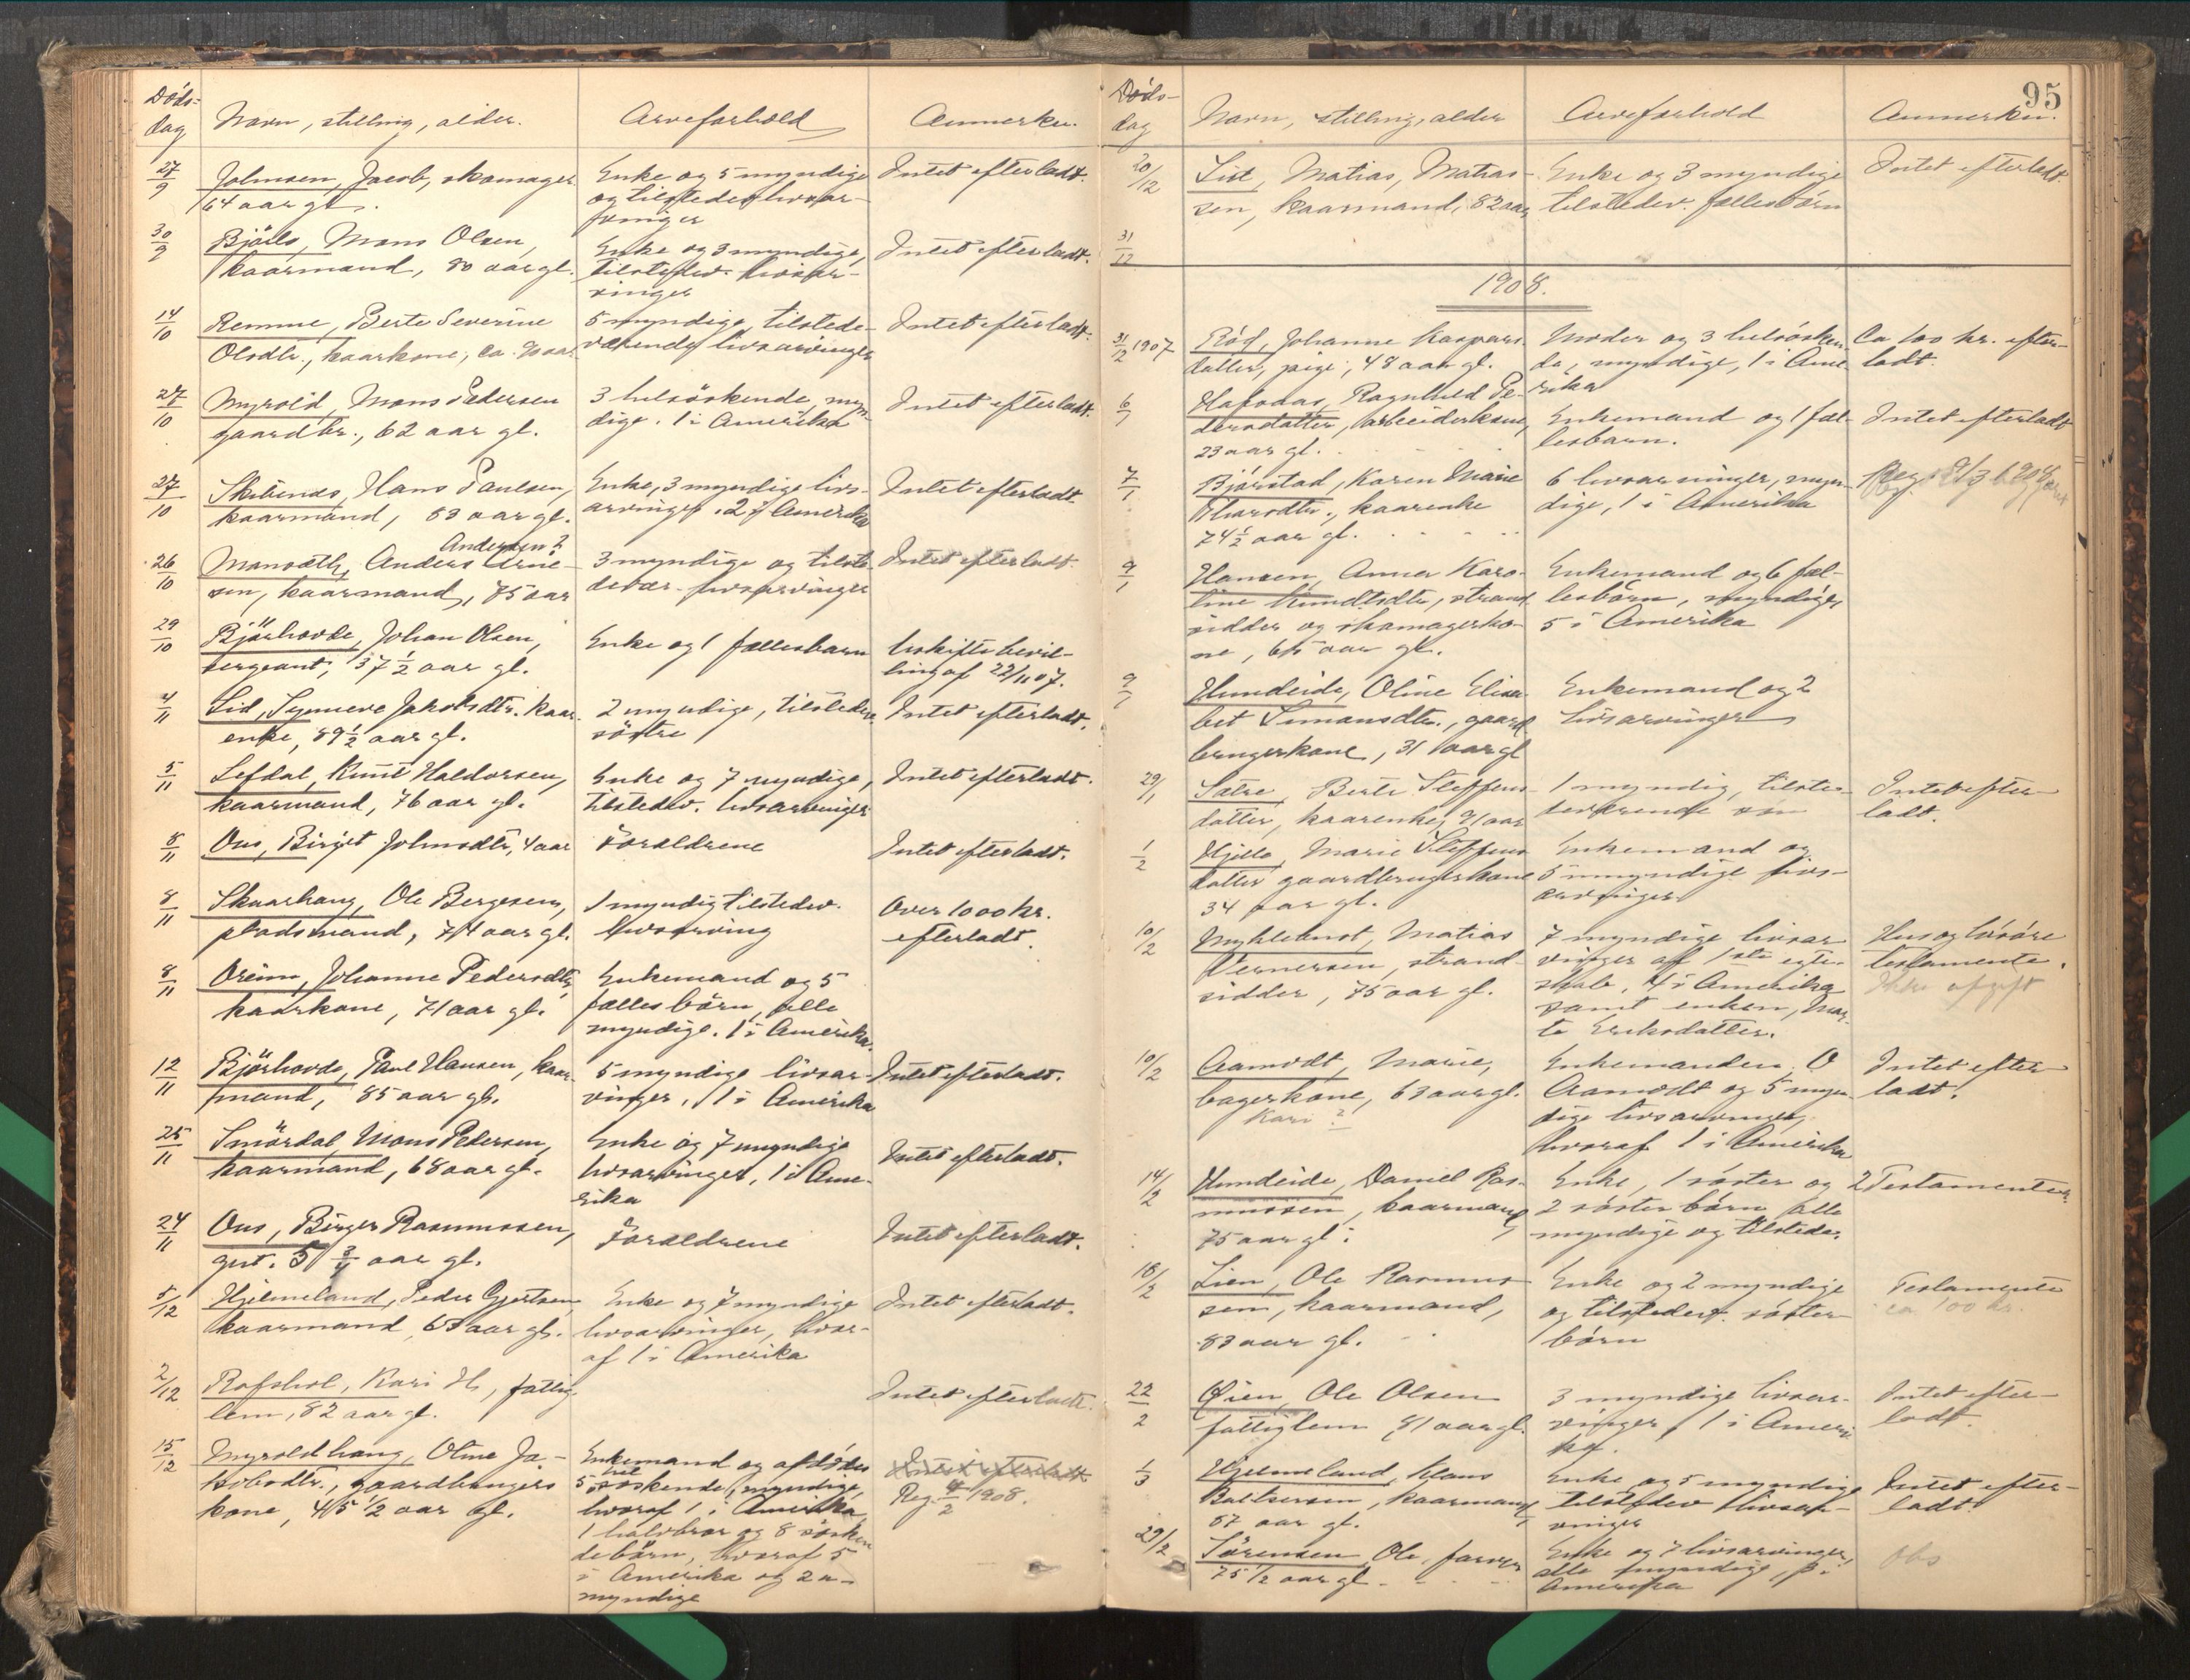 Döds-
dag
Navn, stilling, alder.
Arveforhold
Anmerkn.
27/9
Johnsen, Jacob, skomager
64 aar gl.
Enke og 5 myndige
og tilstedev. livsar-
vinger
Intet efterladt.
30/9
Mons Olsen,
kaarmand, 80 aar gl.
Enke og 3 myndige,
tilstedev. livsar-
vinger
Intet efterladt.
14/10
Remme, Berte Severine
Olsdtr., kaarkone, ca. 90 aar
5 myndige, tilstede-
værende livsarvinger
Intet efterladt.
27/10
Myrold, Mons Pedersen
gaardbr., 62 aar gl.
3 helsöskende, myn-
dige. 1 i Amerika
Intet efterladt.
27/10
Hans Paulsen,
kaarmand, 83 aar gl.
Enke, 3 myndige livs-
arvinger. 2 i Amerika
Intet efterladt.
26/10
Andersen?
Anders Arne-
sen, kaarmand, 75 aar
3 myndige og tilste-
devær. livsarvinger
Intet efterladt.
29/10
Bjørhovde, Johan Olsen,
sergeant, 37 ½ aar gl.
Enke og 1 fællesbarn
Uskiftebevil-
ling af 22/11 07.
4/11
Lid, Synneve Jakobsdtr. kaar-
enke, 89 ½ aar gl.
2 myndige, tilstedev.
söstre
Intet efterladt.
5/11
Lefdal, Knut Haldorsen,
kaarmand, 76 aar gl.
Enke og 7 myndige,
tilstedev. livsarvinger
Intet efterladt.
8/11
Ous, Birgit Johnsdtr, 4 aar
Forældrene
Intet efterladt.
8/11
Skaarhaug, Ole Bergesen,
pladsmand, 74 aar gl.
1 myndig tilstedev.
livsarving
Over 1000 kr.
efterladt.
8/11
Oreim, Johanne Pedersdtr,
kaarkone, 71 aar gl.
Enkemand og 5
fællesbörn, alle
myndige. 1 i Amerika.
12/11
Bjørhovde, Paul Hansen, kaar-
mand, 85 aar gl.
5 myndige livsar-
vinger, 1 i Amerika
Intet efterladt.
25/11
Smördal, Mons Pedersen,
kaarmand, 68 aar gl.
Enke og 7 myndige
livsarvinger, 1 i Ame-
rika
Intet efterladt.
24/11
Ous, Birger Rasmussen,
gut. 5 ¾ aar gl.
Forældrene
Intet efterladt.
5/12
Hjelmeland, Peder Gjertsen
kaarmand, 63 aar gl.
Enke og 7 myndige
livsarvinger, hvor-
af 1 i Amerika
Intet efterladt.
2/12
Kari H., fattig-
lem, 82 aar gl.
Intet efterladt.
15/12
Myroldhaug, Oline Ja-
kobsdtr., gaardbrugers
kone, 45 ½ aar gl.
Enkemand og afdödes
5 helsöskende, myndige,
hvoraf 1 i Amerika,
1 halvbror og 8 sösken
debörn, hvoraf 5
i Amerika og 2 u-
myndige
Intet efterladt
Reg. 4/2 1908.
95
Döds-
dag
Navn, stilling, alder
Arveforhold
Anmerkn.
20/12
List, Matias, Matias-
sen, kaarmand, 82 aar
Enke og 3 myndige
tilstedev. fællesbörn
Intet efterladt.
31/12
1908.
31/12 1907
Röd, Johanne Kaspars-
datter, pige, 48 aar gl.
Moder og 3 helsösken-
de, myndige, 1 i Ame-
rika
Ca 100 kr. efter-
ladt.
6/1
Ragnhild Pe-
dersdatter, arbeiderkone,
23 aar gl.
Enkemand og 1 fæl-
lesbarn.
Intet efterladt
7/1
Bjørstad, Karen Marie
kaarenke
74 ½ aar gl.
6 livsarvinger, myn-
dige, 1 i Amerika
9/1
Hansen, Anna Karo-
line Knudtsdtr, strand-
sidder og skomagerko-
ne, 65 aar gl.
Enkemand og 6 fæl-
lesbörn, myndige,
5 i Amerika
9/1
Hundeide, Oline Elisa-
bet Simonsdtr., gaard-
brugerkone, 31 aar gl
Enkemand og 2
livsarvinger
29/1
Sætre, Berte Steffens-
datter, kaarenke, 91 aar
1 myndig, tilste-
deværende sön
Intet efter-
ladt.
1/2
Hjelle, Marie Steffens
datter gaardbrugerkone
34 aar gl.
Enkemand og
5 umyndige livs-
arvinger
10/2
Myklebust, Matias
Vernersen, strand-
sidder, 75 aar gl.
7 myndige livsar
vinger af 1ste egte-
skab, 4 i Amerika
samt enken, Mar-
te Eriksdatter.
Hus og lösöre
testamente.
Ikke afgift
10/2
Aamodt, Marie,
bagerkone, 63 aar gl.
Kari?
Enkemanden O
Aamodt og 5 myn-
dige livsarvinger,
hvoraf 1 i Amerika
Intet efter-
ladt.
14/2
Hundeide, Daniel Ras-
mussen, kaarmand
75 aar gl.
Enke, 1 söster og
2 sösterbörn alle
myndige og tilstedev.
2 Testamenter
18/2
Lien, Ole Rasmus-
sen, kaarmand,
83 aar gl.
Enke og 2 myndige
og tilstedev. söster-
börn
Testamente
ca 100 kr.
22/2
Øien, Ole Olsen
fattiglem, 81 aar gl.
3 myndige livsar-
vinger, 1 i Ameri-
ka.
Intet efter-
ladt.
1/3
Hjelmeland, Klaus
Baltsersen, kaarmand
87 aar gl.
Enke og 5 myndige
tilstedev livsar-
vinger
Intet efter-
ladt.
29/2
Sörensen, Ole, farver
75 ½ aar gl
Enke og 7 livsarvinger,
alle myndige, i
Amerika
Obs